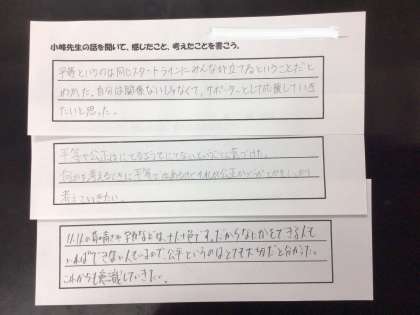 小峰先生の話を聞いて、感じたこと、考えたことを書こう。
平等というのは同じスタートラインにみんなが立てるということだと
わかった。自分は関係ないじゃなくて、サポーターとして応援していき
たいと思った。
平等と公正はにてるようでにてないということに気づけた。
何かを考えるときに平等ではあるけどそれが公正かどうかをしっかり
考えていきたい。
人それぞれ などは、十人十色です。だからなにかをできる人も
いればできない人もいるので、公平というのはとても大切だと分かった。
これからも意識していきたい。